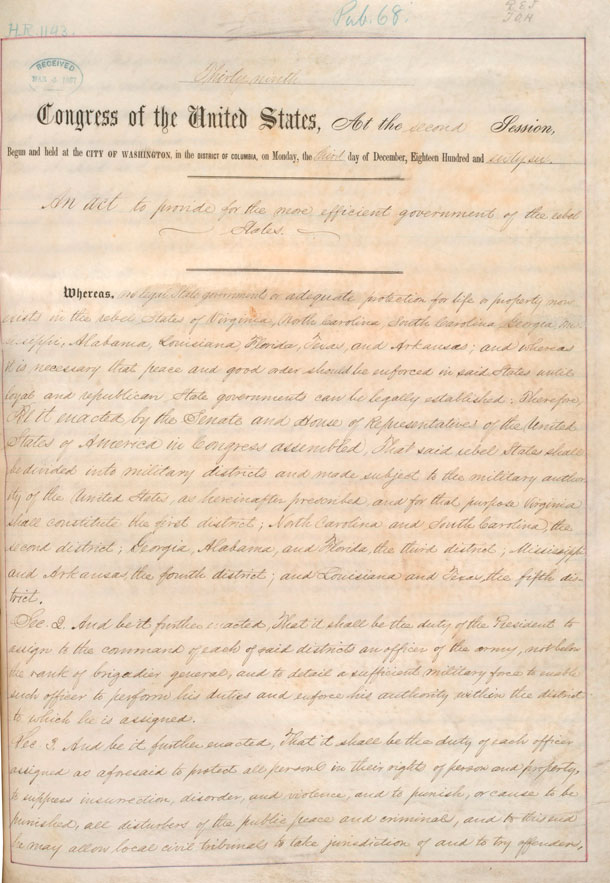 H.R. 1143.
Pub. 68.
RECEIVED
Thirty-ninth
Congress of the United States, At the second Session,
Begun and held at the CITY OF WASHINGTON, in the DISTRICT OF COLUMBIA, on Monday, the third day of December, Eighteen Hundred and sixty six.
An act to provide for the more efficient government of the rebel
States.
Whereas, no legal State government or adequate protection for life or property now
exists in the rebel States of Virginia, North Carolina, South Carolina, Georgia, Mis-
sissippi, Alabama, Louisiana, Florida, Texas, and Arkansas; and whereas
it is necessary that peace and good order should be enforced in said States until
loyal and republican State governments can be legally established: Therefore,
Be it enacted by the Senate and House of Representatives of the United
States of America in Congress assembled, That said rebel States shall
be divided into military districts and made subject to the military author-
ity of the United States, as hereinafter prescribed, and for that purpose Virginia
shall constitute the first district; North Carolina and South Carolina, the
second district; Georgia, Alabama, and Florida, the third district; Mississippi
and Arkansas, the fourth district; and Louisiana and Texas, the fifth dis-
trict.
Sec. 2. And be it further enacted, That it shall be the duty of the President to
assign to the command of each of said districts an officer of the army, not below
the rank of brigadier general, and to detail a sufficient military force to enable
such officer to perform his duties and enforce his authority within the district
to which he is assigned.
Sec. 3. And be it further enacted, That it shall be the duty of each officer
assigned as aforesaid to protect all persons in their rights of person and property,
to suppress insurrection, disorder, and violence, and to punish, or cause to be
punished, all disturbers of the public peace and criminals, and to this end
he may allow local civil tribunals to take jurisdiction of and to try offenders,